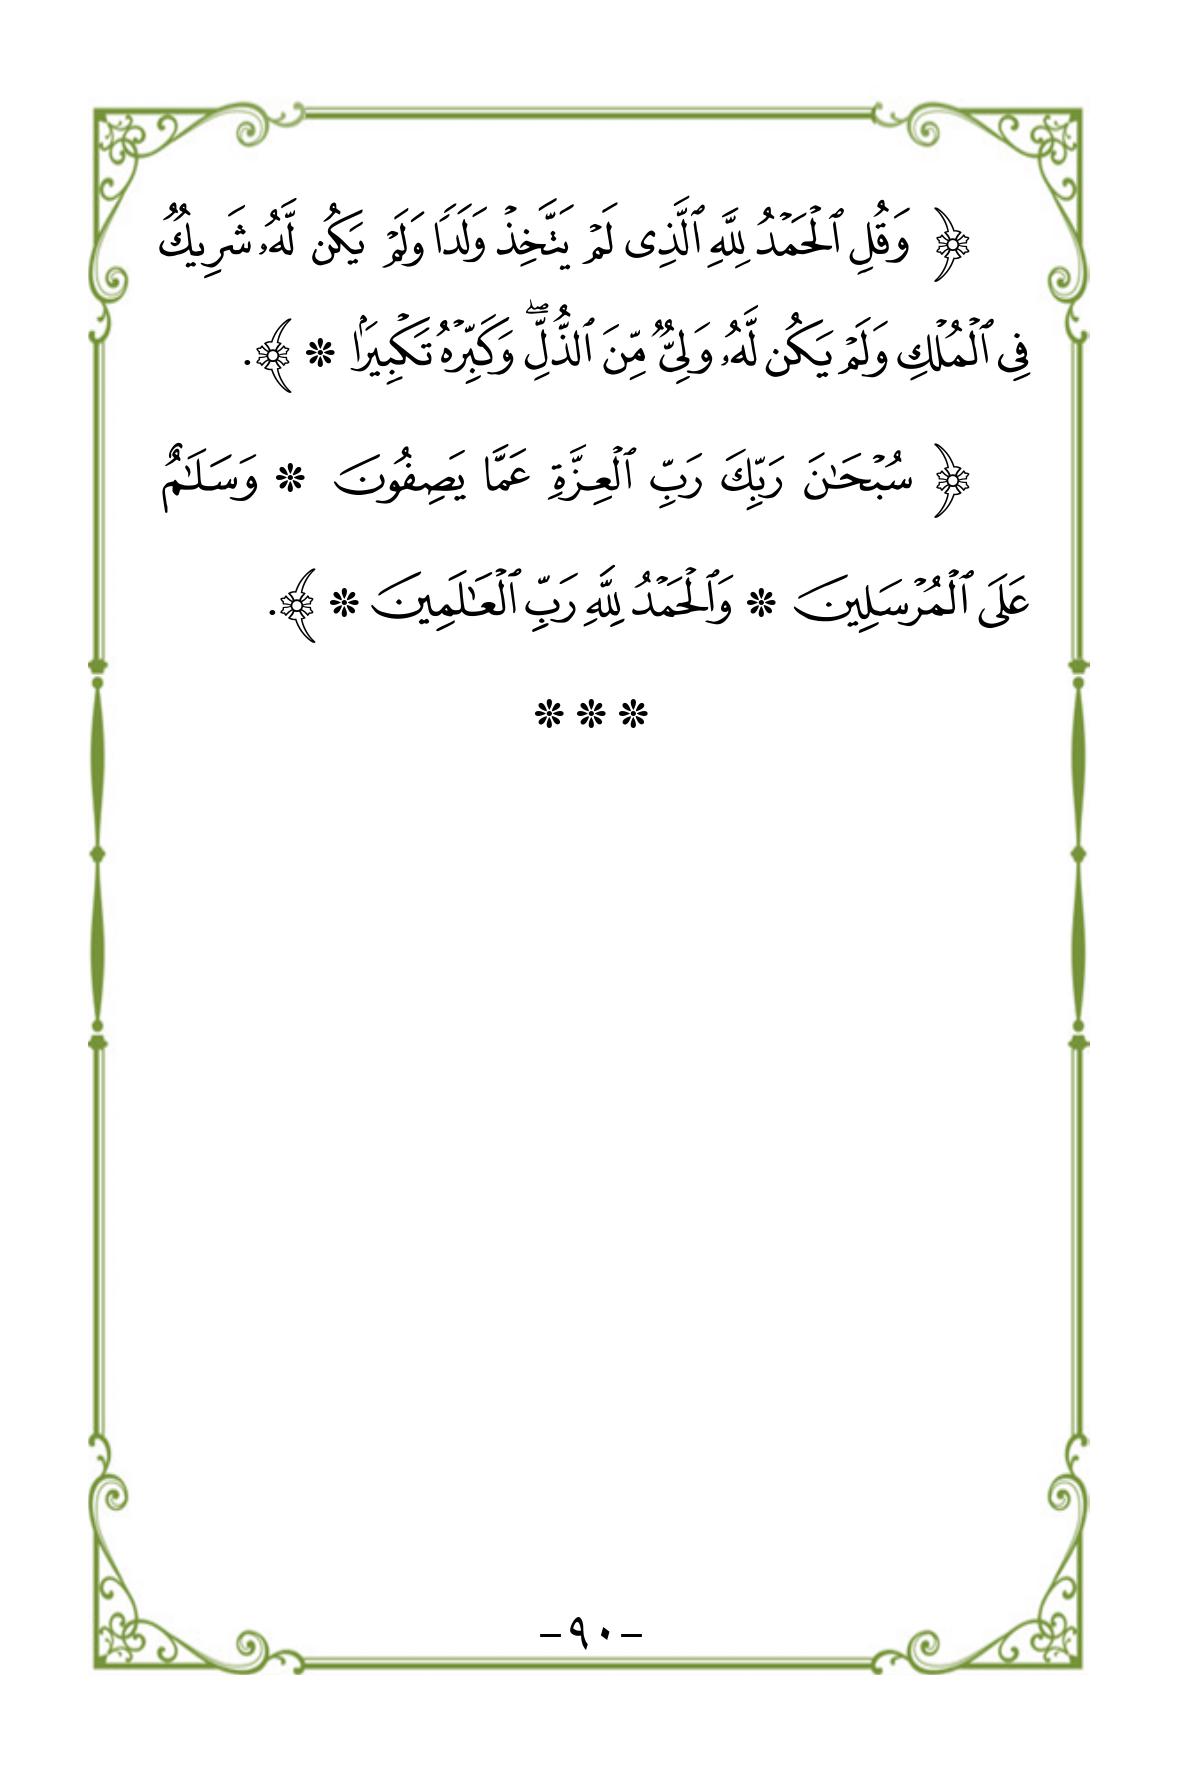 ﴿ وَقُلِ ٱلْحَمْدُ لِلَّهِ ٱلَّذِى لَمْ يَتَّخِذْ وَلَدًا وَلَمْ يَكُن لَّهُۥ شَرِيكٌ
فِى ٱلْمُلْكِ وَلَمْ يَكُن لَّهُۥ وَلِىٌّ مِّنَ ٱلذُّلِّۖ وَكَبِّرْهُ تَكْبِيرًۢا ❊ ﴾.
﴿ سُبْحَـٰنَ رَبِّكَ رَبِّ ٱلْعِزَّةِ عَمَّا يَصِفُونَ ❊ وَسَلَـٰمٌ
عَلَى ٱلْمُرْسَلِينَ ❊ وَٱلْحَمْدُ لِلَّهِ رَبِّ ٱلْعَـٰلَمِينَ ❊ ﴾.
❊ ❊ ❊
–٩٠–